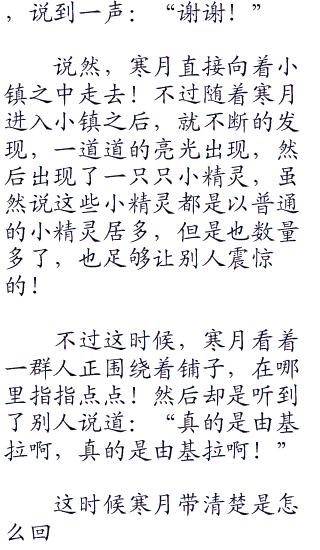 ，说到一声：“谢谢！”
说然，寒月直接向着小
镇之中走去！不过随着寒月
进入小镇之后，就不断的发
现，一道道的亮光出现，然
后出现了一只只小精灵，虽
然说这些小精灵都是以普通
的小精灵居多，但是也数量
多了，也足够让别人震惊
的！
不过这时候，寒月看着
一群人正围绕着铺子，在哪
里指指点点！然后却是听到
了别人说道：“真的是由基
拉啊，真的是由基拉啊！”
这时候寒月带清楚是怎
么回